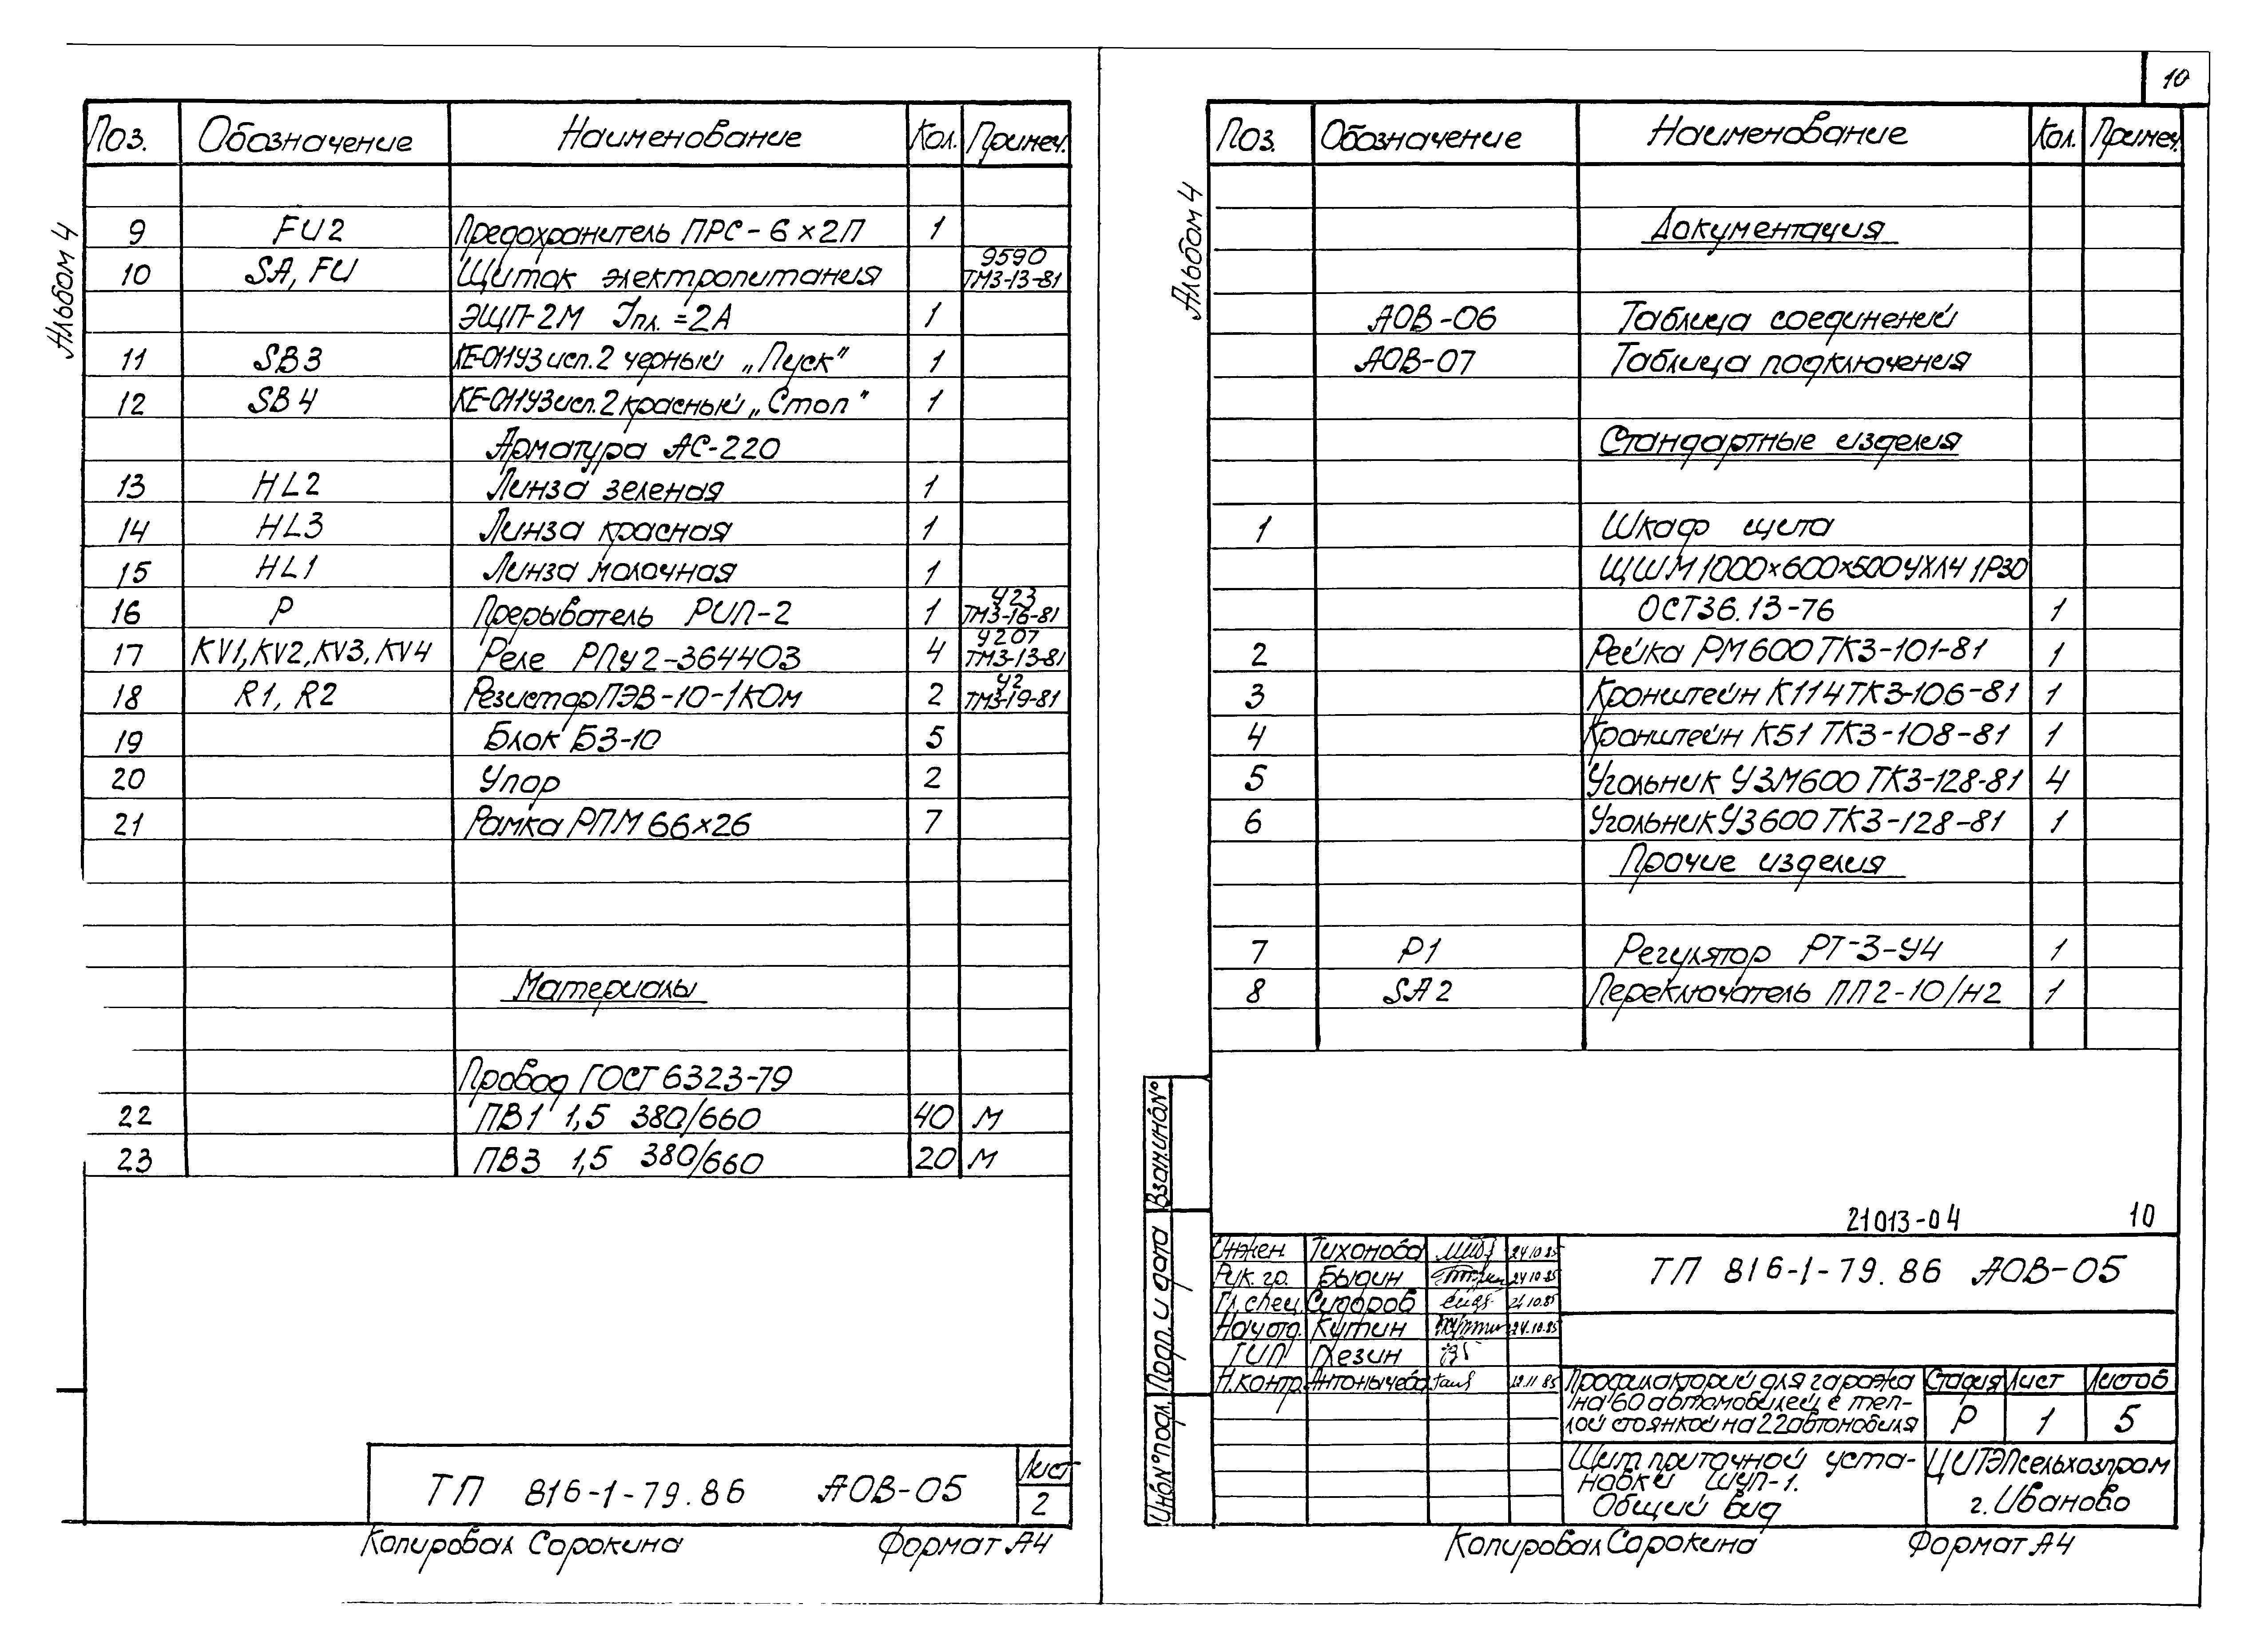 Альбом 4
Поз. Обозначение Наименование Кол. Примеч.
9 FU2 Предохранитель ПРС-6×2П 1
10 SA, FU Щиток электропитания 9590 ТМ3-13-81
ЭЩП-2М Iпл.=2А 1
11 SB3 КЕ-011У3 исп.2 черный „Пуск" 1
12 SB4 КЕ-011У3 исп.2 красный „Стоп" 1
Арматура АС-220
13 HL2 Линза зеленая 1
14 HL3 Линза красная 1
15 HL1 Линза молочная 1
16 Р Прерыватель РИП-2 1 У23 ТМ3-16-81
17 KV1, KV2, KV3, KV4 Реле РПУ2-364403 4 У207 ТМ3-13-81
18 R1, R2 Резистор ПЭВ-10-1КОм 2 У2 ТМ3-19-81
19 Блок БЗ-10 5
20 Упор 2
21 Рамка РПМ 66×26 7
Материалы
Провод ГОСТ 6323-79
22 ПВ1 1,5 380/660 40 м
23 ПВ3 1,5 380/660 20 м
ТП 816-1-79.86 АОВ-05
Лист
2
Копировал Сорокина Формат А4
10
Альбом 4
Поз. Обозначение Наименование Кол. Примеч.
Документация
АОВ-06 Таблица соединений
АОВ-07 Таблица подключения
Стандартные изделия
1 Шкаф щита
ЩШМ 1000×600×500 УХЛ4 1Р30
ОСТ36.13-76 1
2 Рейка РМ600 ТК3-101-81 1
3 Кронштейн К114 ТК3-106-81 1
4 Кронштейн К51 ТК3-108-81 1
5 Угольник УЗМ600 ТК3-128-81 4
6 Угольник УЗ600 ТК3-128-81 1
Прочие изделия
7 Р1 Регулятор РТ-3-У4 1
8 SA2 Переключатель ПП2-10/Н2 1
21013-04 10
Взам.инв№
Подп. и дата
Инв№подл.
Инжен. Тихонова 24.10.85
Рук. гр. Быдин 24.10.85
Гл. спец. Сидоров 24.10.85
Нач отд. Кутин 24.10.85
ГИП Резин
Н.контр. Антонычева 19.11.85
ТП 816-1-79.86 АОВ-05
Профилакторий для гаража
на 60 автомобилей с теп-
лой стоянкой на 22 автомобиля
Стадия Лист Листов
Р 1 5
Щит приточной уста-
новки ШУП-1.
Общий вид
ЦИТЭПсельхозпром
г. Иваново
Копировал Сорокина Формат А4